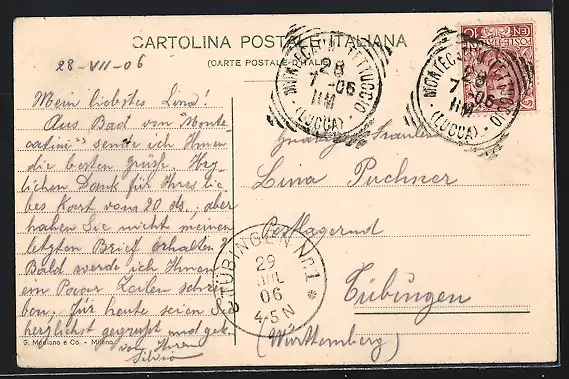 CARTOLINA POSTALE ITALIANA
(CARTE POSTALE D'ITALIE)
28-VII-06
Mein liebstes Lina!
Aus Bad von "Monte-
catini" sende ich Ihnen
die besten Grüße. Herz-
lichen Dank für Ihres lie-
bes Kart vom 20 ds., aber
haben Sie nicht meinen
letzten Brief erhalten?
Bald werde ich Ihnen
ein Paar Zeilen schrei-
ben. Für heute seien Sie
herzlichst gegrüsst und gek.
von Ihren
Silvio
G. Modiano e Co. - Milano
MONTECATINI-FETTUCCIO
28
7-06
11M
(LUCCA)
MONTECATINI
28
7-06
11M
(LUCCA)
POSTE ITALIANE
CENT. 10
Fraulein
Lina Puchner
Postlagernd
Tübingen
(Württemberg)
TÜBINGEN No. 1
29
JUL
06
4-5 N